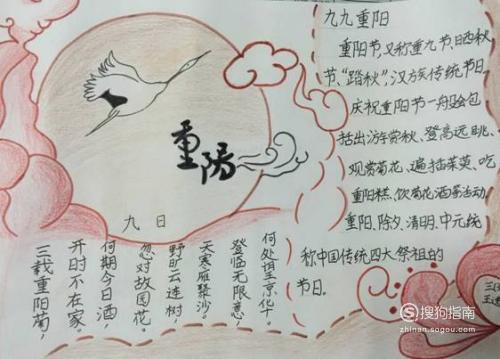 九九重阳
重阳节,又称重九节、晒秋
节、“踏秋”,汉族传统节日
庆祝重阳节一般会包
括出游赏秋、登高远眺、
观赏菊花、遍插茱萸、吃
重阳糕、饮菊花酒等活动
重阳、除夕、清明、中元统
称中国传统四大祭祖的
节日.
重陽
九日
三载重阳菊,
开时不在家。
何期今日酒,
忽对故园花。
野旷云连树,
天寒雁聚沙。
登临无限意,
何处望京华。
搜狗指南
zhinan.sogou.com